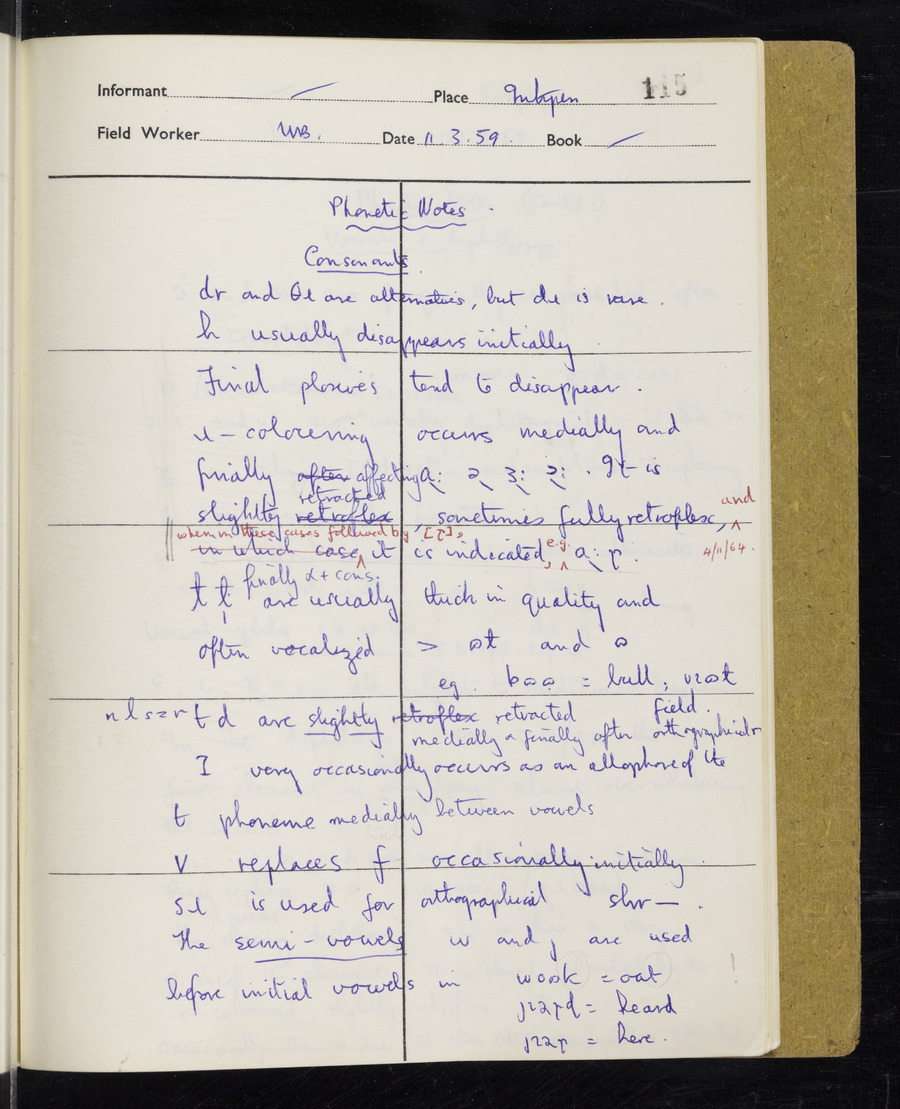 Informant / Place Inkpen 115
Field Worker WB. Date 11.3.59. Book /
Phonetic Notes.
Consonants
dr and θɹ are alternatives, but dɹ is rare.
h usually disappears initially
Final plosives tend to disappear.
ɹ-colouring occurs medially and
finally often affecting ɑ: ə ɜ: . It is
retracted
slightly retroflex, sometimes fully retroflex, and
when in these cases followed by [ɽ],
in which case it is indicated, e.g. ɑ:ɽ. 4/11/64.
finally & + cons.
ɫ ɫ̩ are usually thick in quality and
often vocalized > ɷɫ and ɷ
eg. bɷɷ = bull; vɪɷɫd
field.
n l s z r t d are slightly retroflex retracted
medially & finally after orthographical r
ɾ very occasionally occurs as an allophone of the
t phoneme medially between vowels
V replaces f occasionally initially.
sɹ is used for orthographical shr—.
The semi-vowels w and j are used
before initial vowels in = oat
= heard
= here.